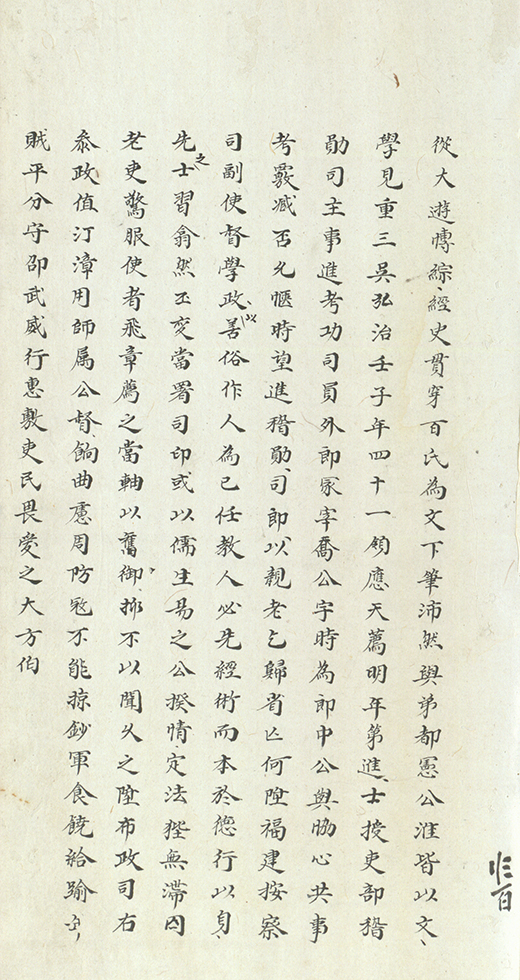 從大遊慱綜經史貫穿百氏為文下筆沛然與弟都憲公淮皆以文
學見重三吳弘治壬子年四十一領應天薦明年第進士授吏部稽
勛司主事進考功司員外郎冢宰喬公宇時為郎中公與協心共事
考覈臧否允愜時望進稽勛司郎以親老乞歸省亡何陞福建按察
司副使督學政以善俗作人為己任教人必先經術而本於德行以身
先之士習翕然丕变當署司印或以儒生易之公揆情定法陛無滯囚
老吏驚服使者飛章薦之當軸以舊御不以聞久之陞布政司右
叅政值汀漳用師属公督餉曲慮周防冦不能掠鈔軍食饒給踰
賊平分守邵武威行惠敷吏民畏愛之大方伯